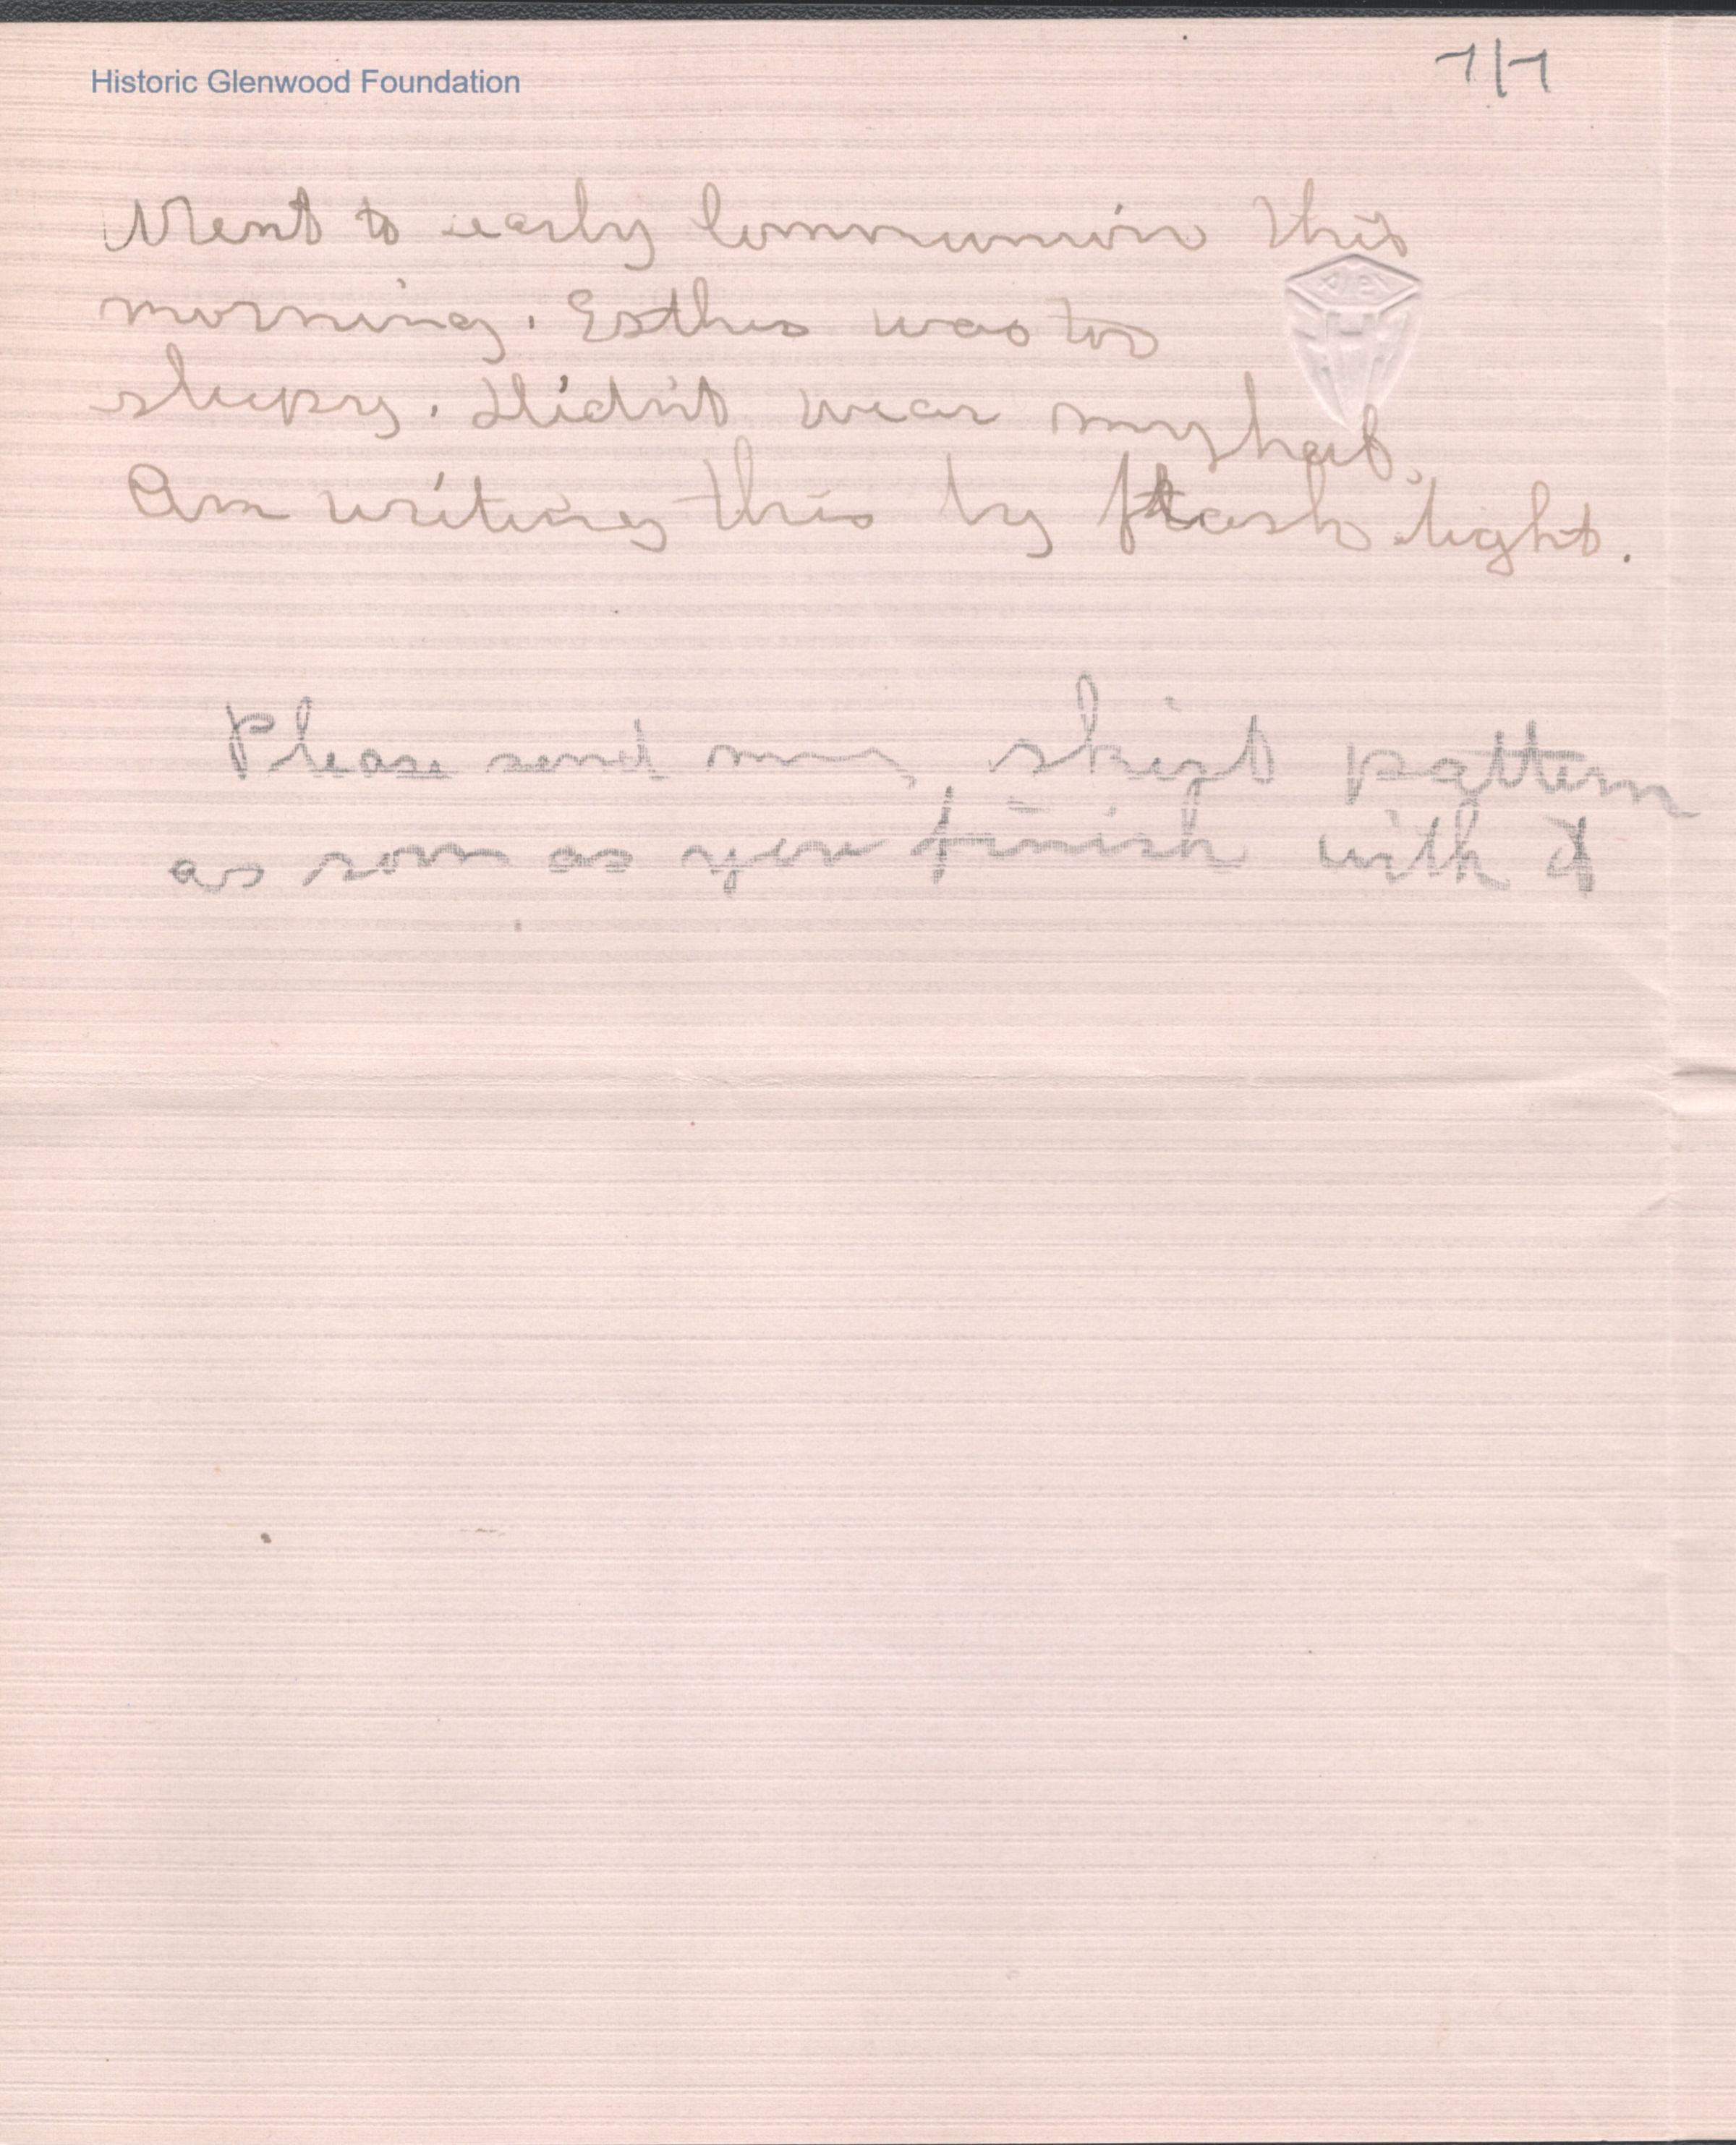 Historic Glenwood Foundation
Went to early Communion this
morning. Esther was too
sleepy. Didn't wear my hat.
Am writing this by flash light.
Please send my skirt pattern
as soon as you finish with it